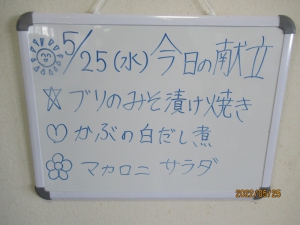 5/25(水)今日の献立
☆ ブリのみそ漬け焼き
♡ かぶの白だし煮
マカロニ サラダ
2022/05/25